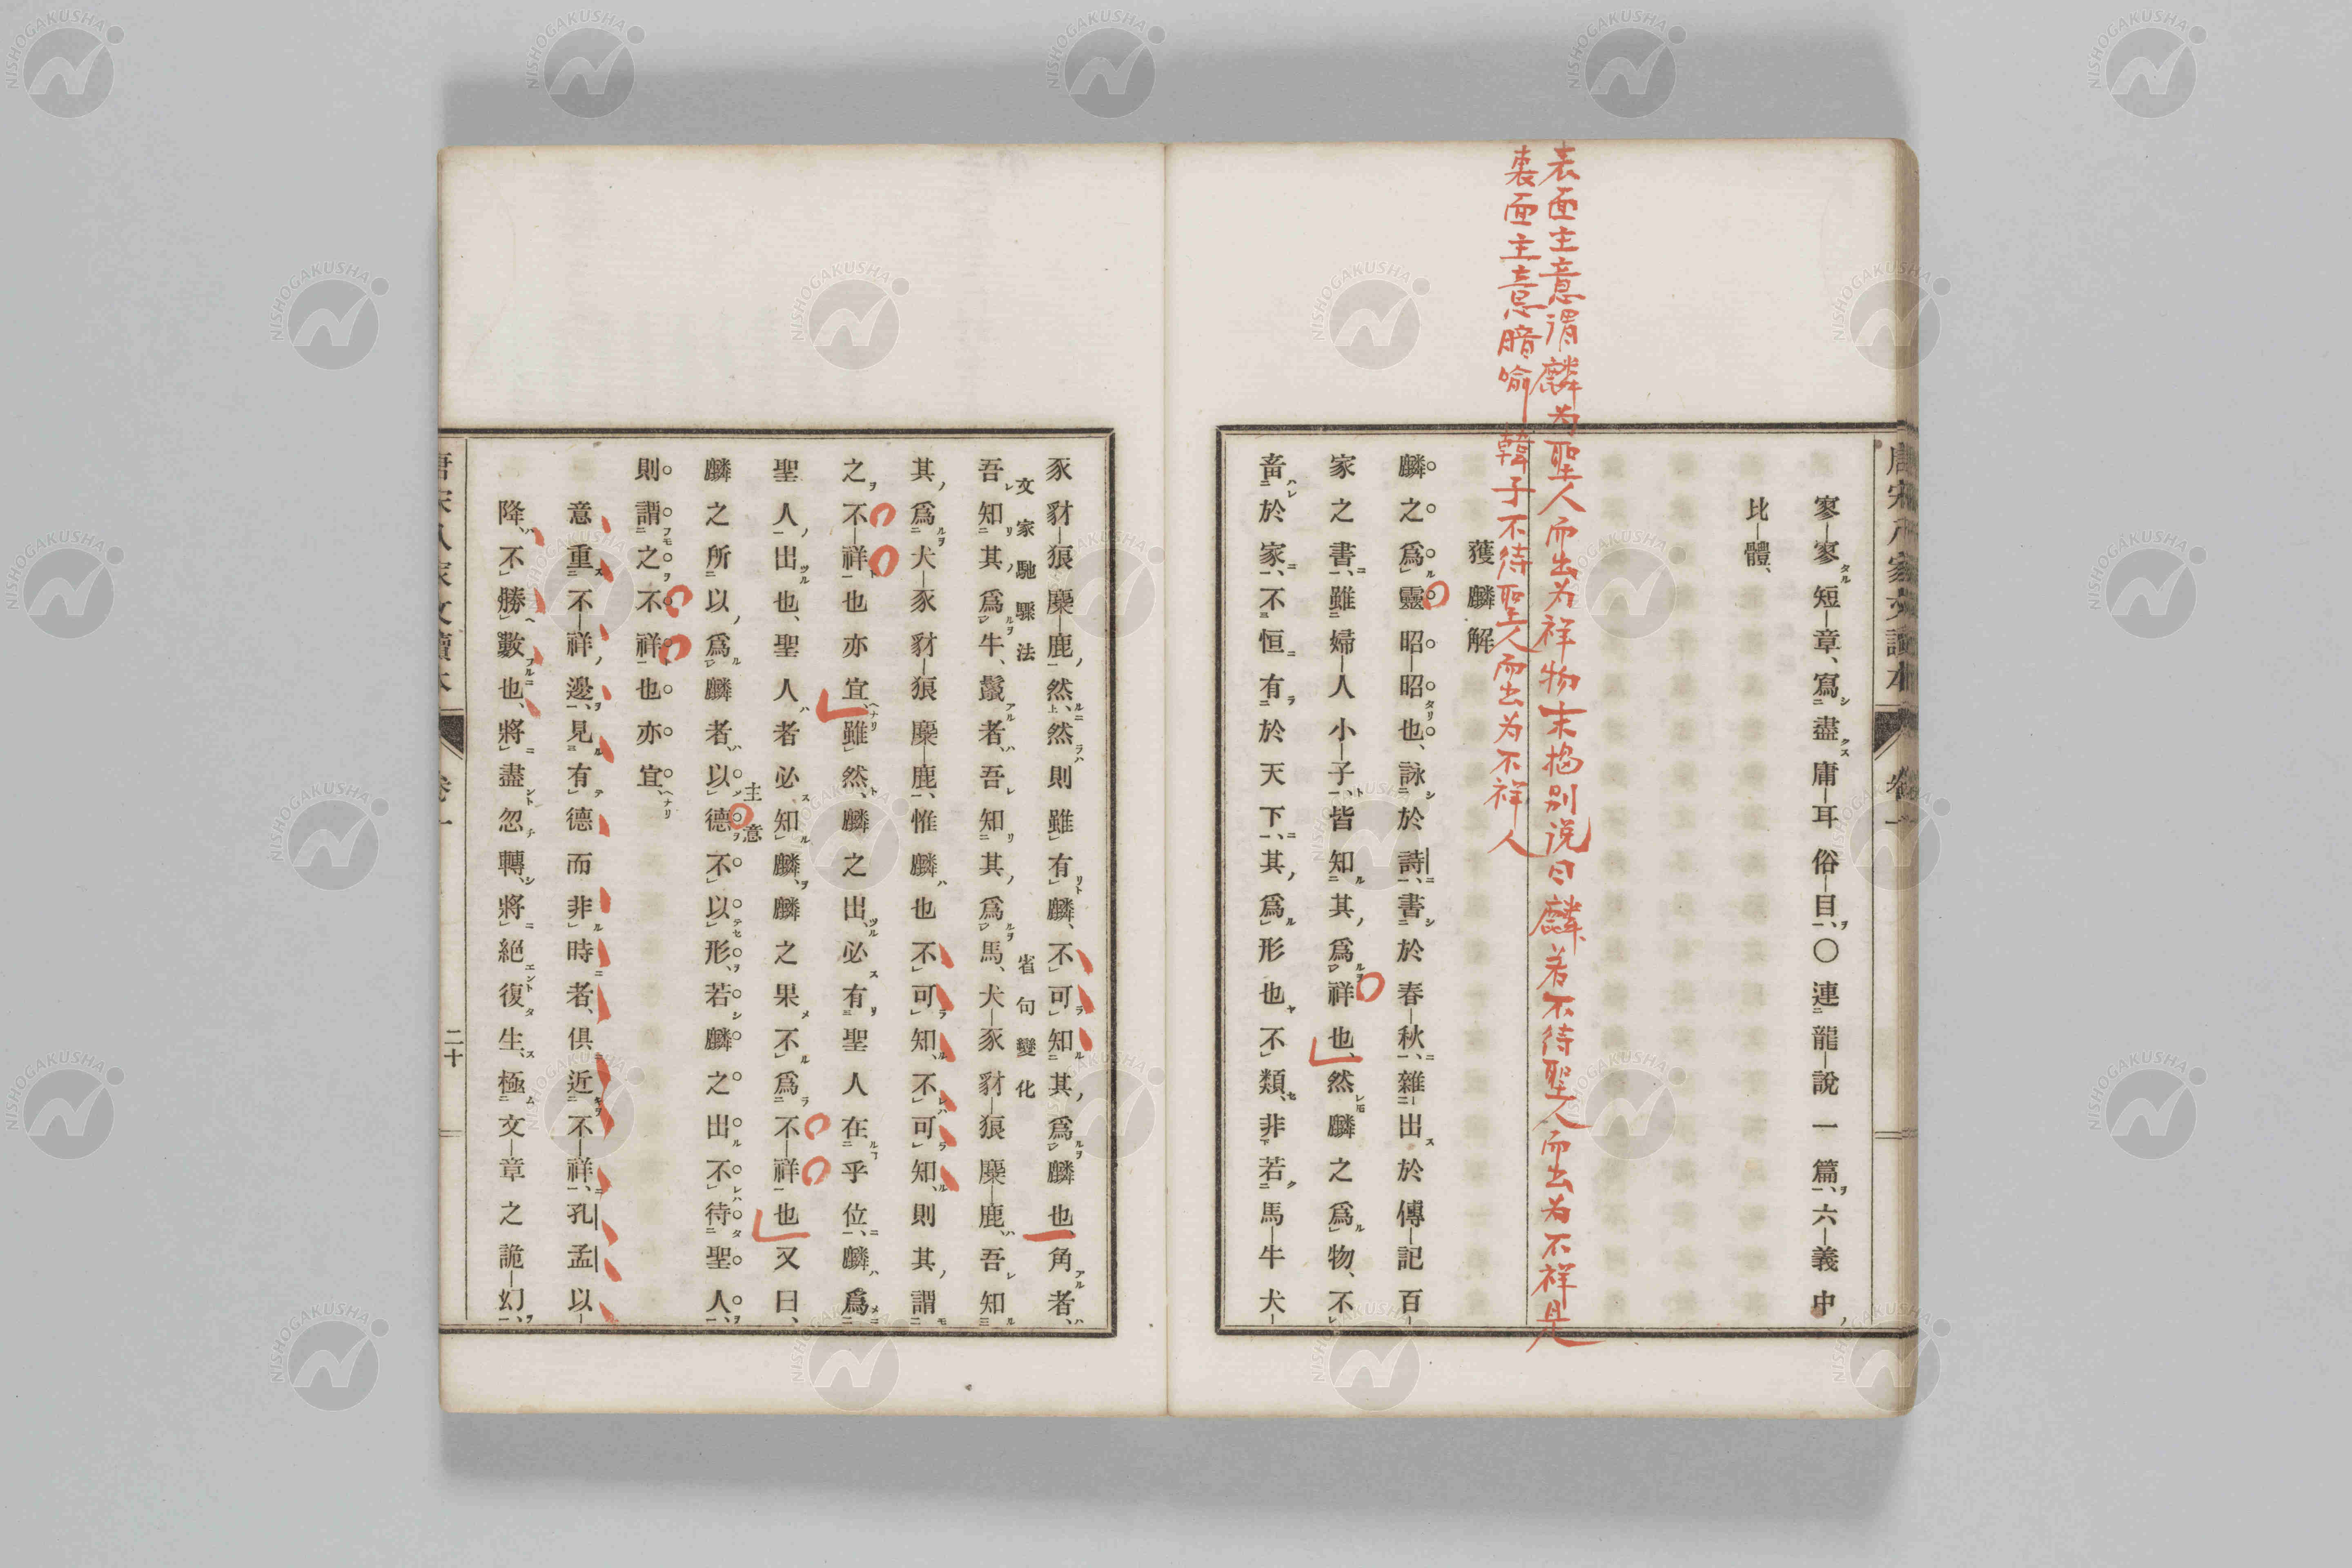 寥寥短章、寫盡庸耳俗目、〇連龍說一篇、六義中、
比體、
表面主意謂麟为聖人而出为祥物末揭别说曰麟若不待聖人而出为不祥是
裏面主意暗喻韓子不待聖人而出为不祥人
獲麟解
麟之爲靈昭昭也、詠於詩、書於春秋、雜出於傳記百
家之書、雖婦人小子、皆知其爲祥也、然麟之爲物、不
畜於家、不恒有於天下、其爲形也不類、非若馬牛犬
豕豺狼麋鹿然、然則雖有麟、不可知其爲麟也、角者、
文家馳驟法
省句變化
吾知其爲牛、鬣者、吾知其爲馬、犬豕豺狼麋鹿、吾知
其爲犬豕豺狼麋鹿、惟麟也不可知、不可知、則其謂
之不祥也亦宜、雖然、麟之出、必有聖人在乎位、麟爲
聖人出也、聖人者必知麟、麟之果不爲不祥也、又曰、
主意
麟之所以爲麟者、以德不以形、若麟之出不待聖人、
則謂之不祥也亦宜、
意重不祥邊、見有德而非時者、俱近不祥、孔孟以
降、不勝數也、將盡忽轉、將絕復生、極文章之詭幻、
唐宋八家文讀本 卷一
二十